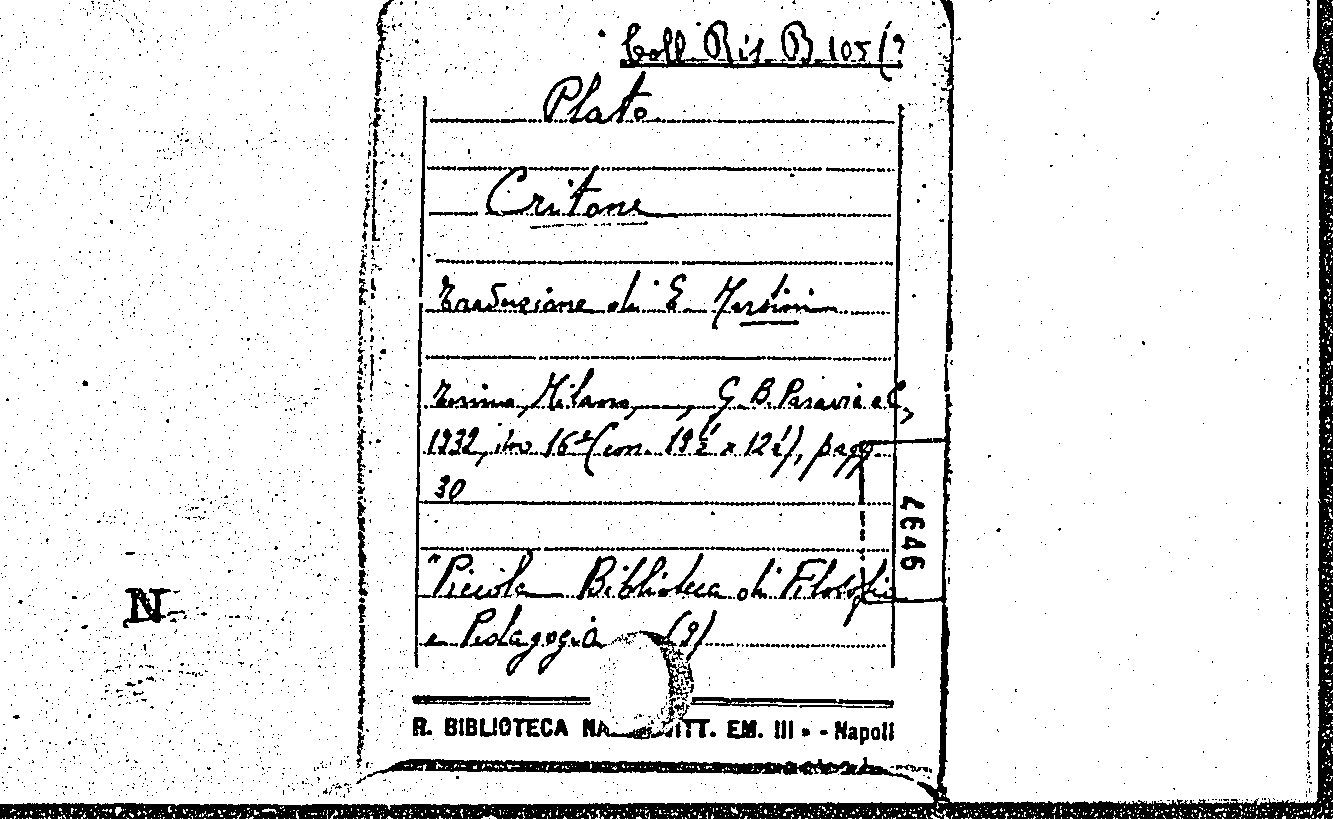 Coll. Ris. B. 105 (9
Plato
Critone
Traduzione di E. Martini
Torino, Milano, —, G. B. Paravia e C,
1932, in 16º (cm. 19 ½ x 12 ½), pagg.
30
"Piccola Biblioteca di Filosofia
e Pedagogia (9)
4646
N
R. BIBLIOTECA NA VITT. EM. III - - Napoli